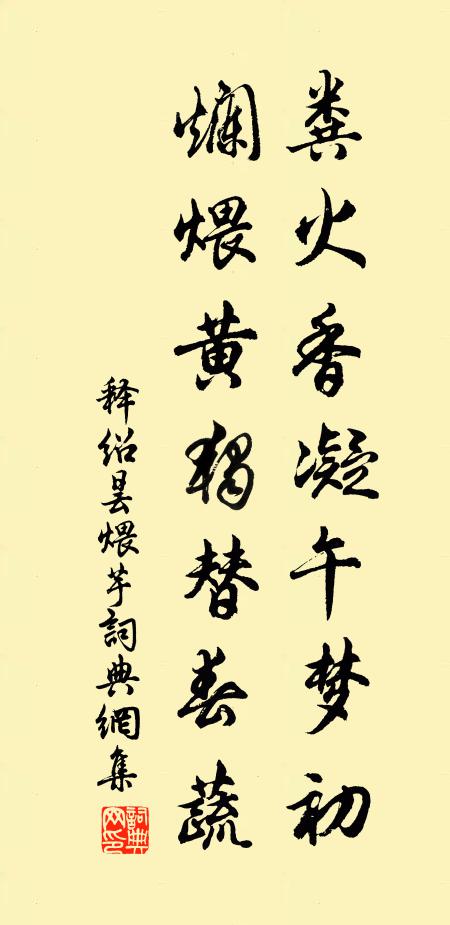 粪火香凝午梦初
烂煨黄独替春蔬
释绍昙煨芋詞典網集
詞典网印